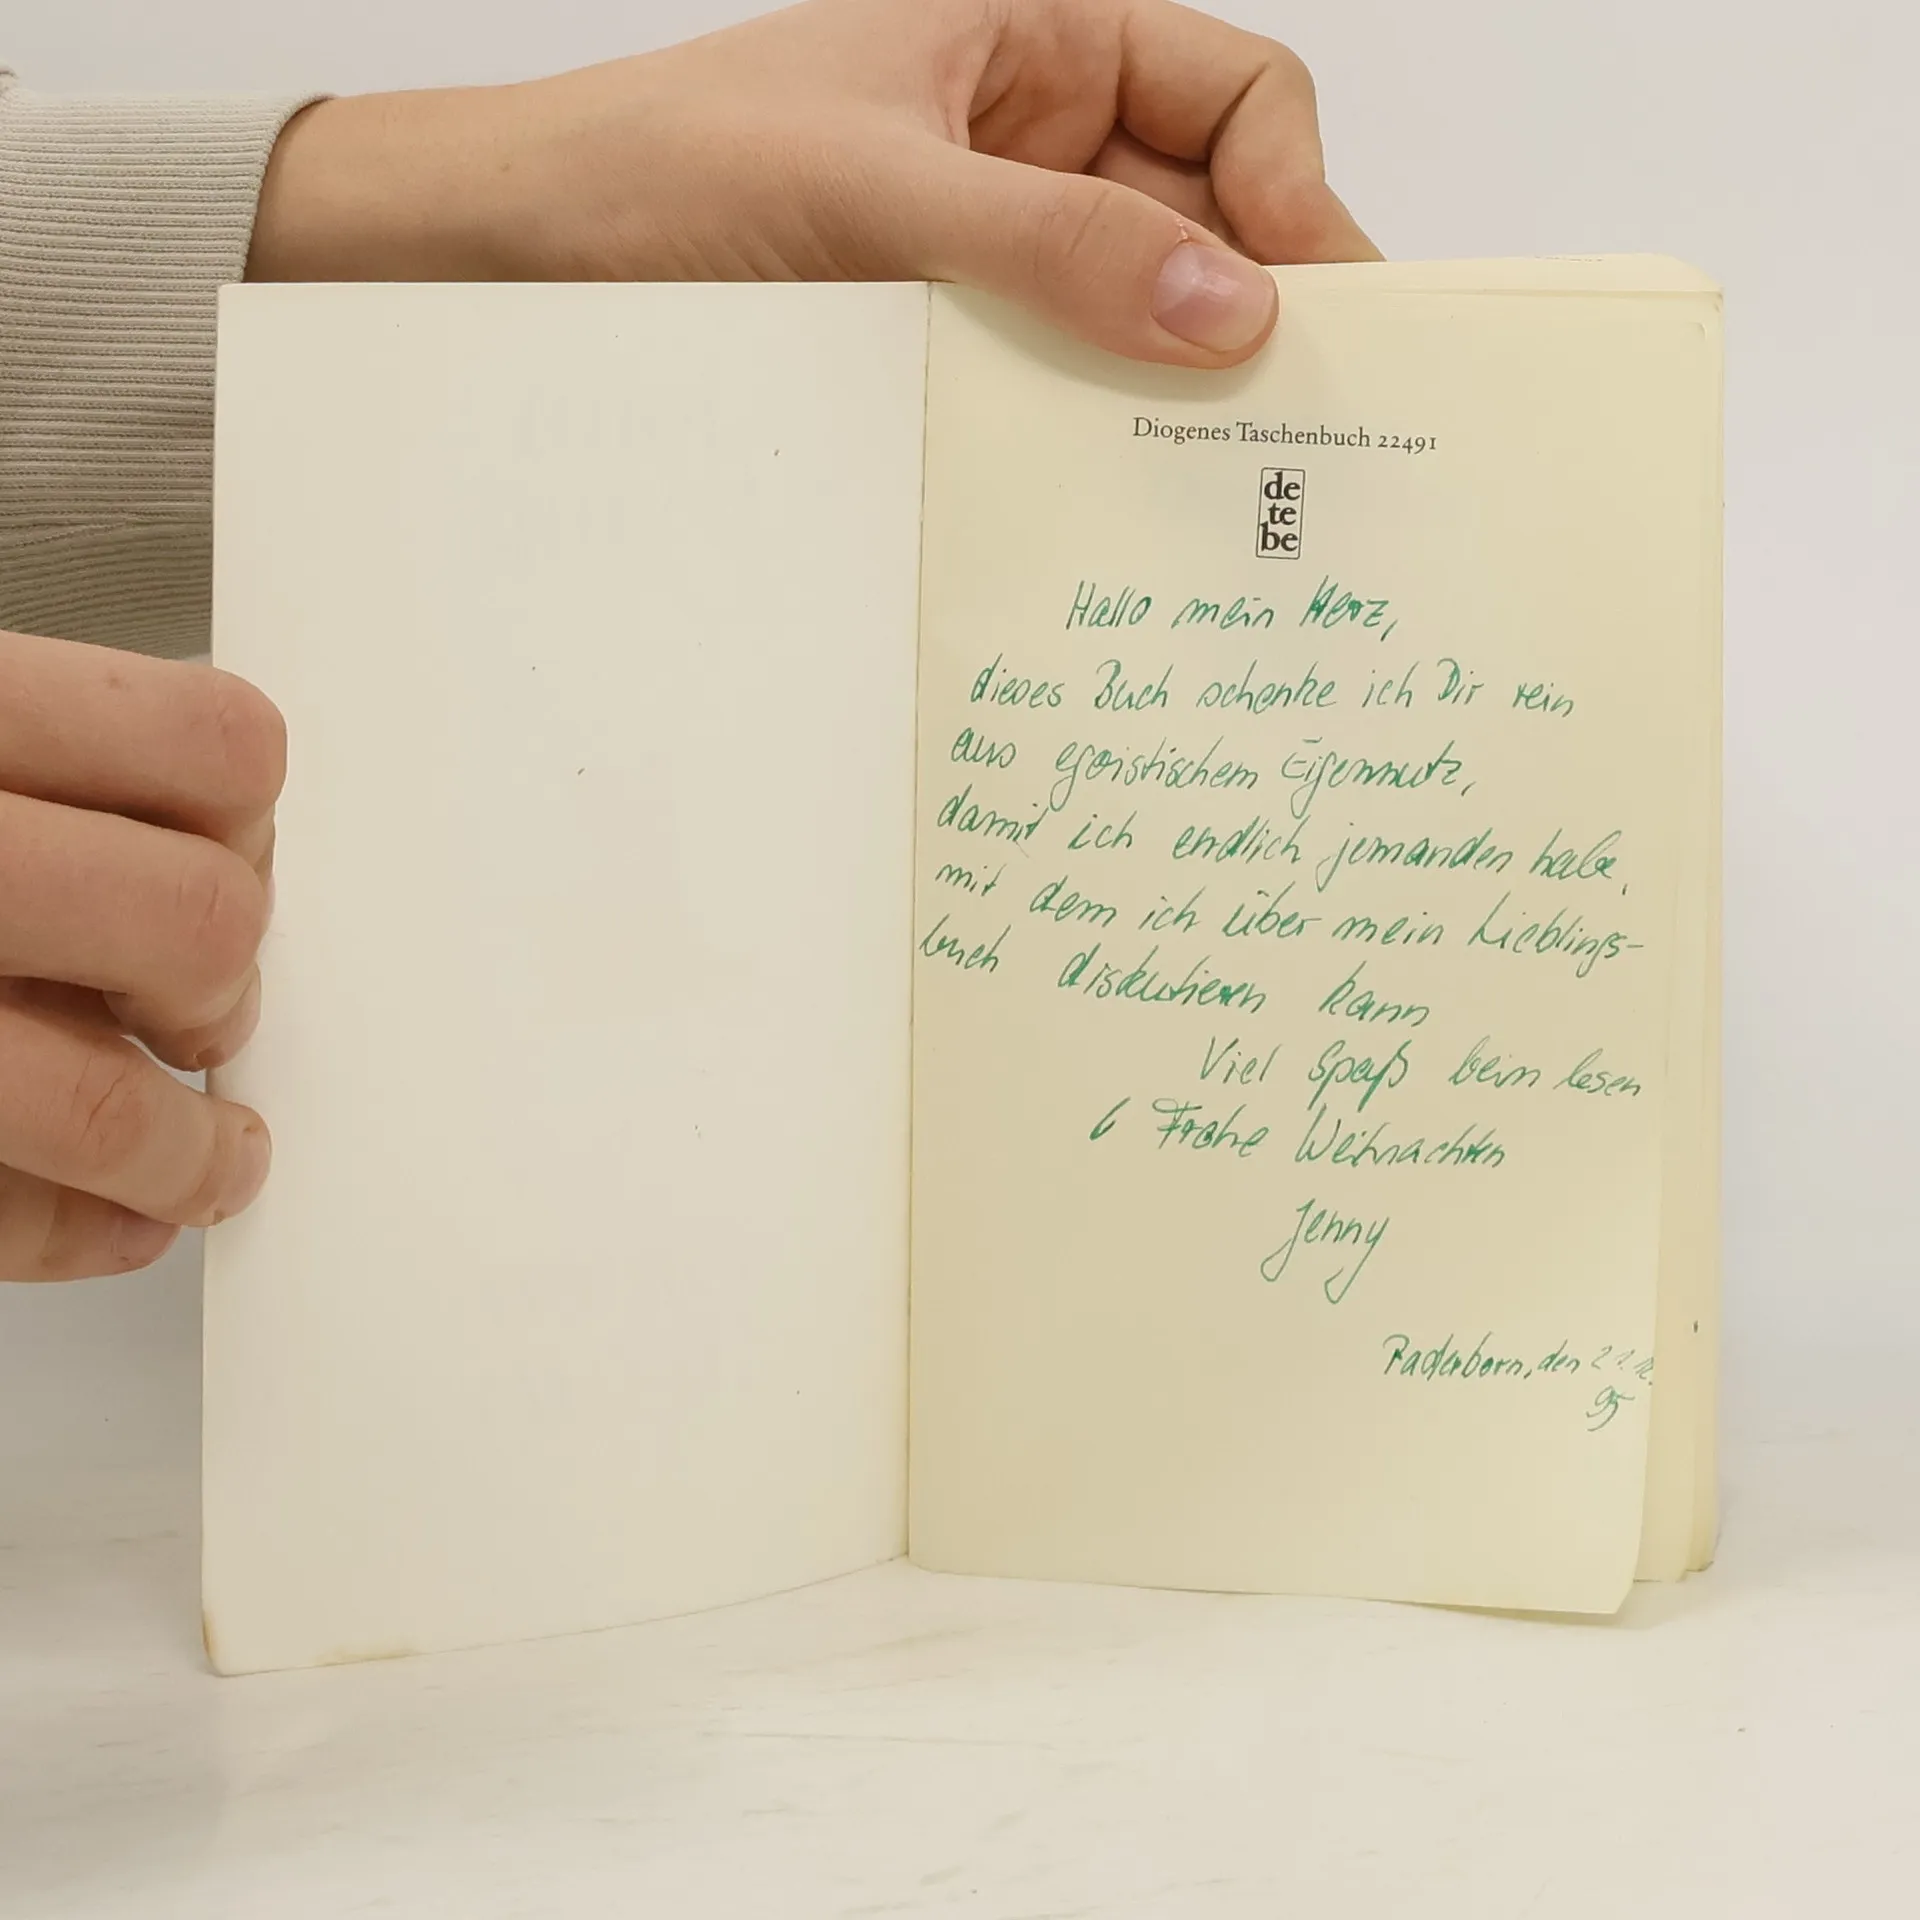 Diogenes Taschenbuch 22491
de
te
be
Hallo mein Herz,
dieses Buch schenke ich Dir rein
aus egoistischem Eigennutz,
damit ich endlich jemanden habe,
mit dem ich über mein Lieblings-
buch diskutieren kann
Viel Spaß beim lesen
& Frohe Weihnachten
Jenny
Paderborn, den 21.12.
95